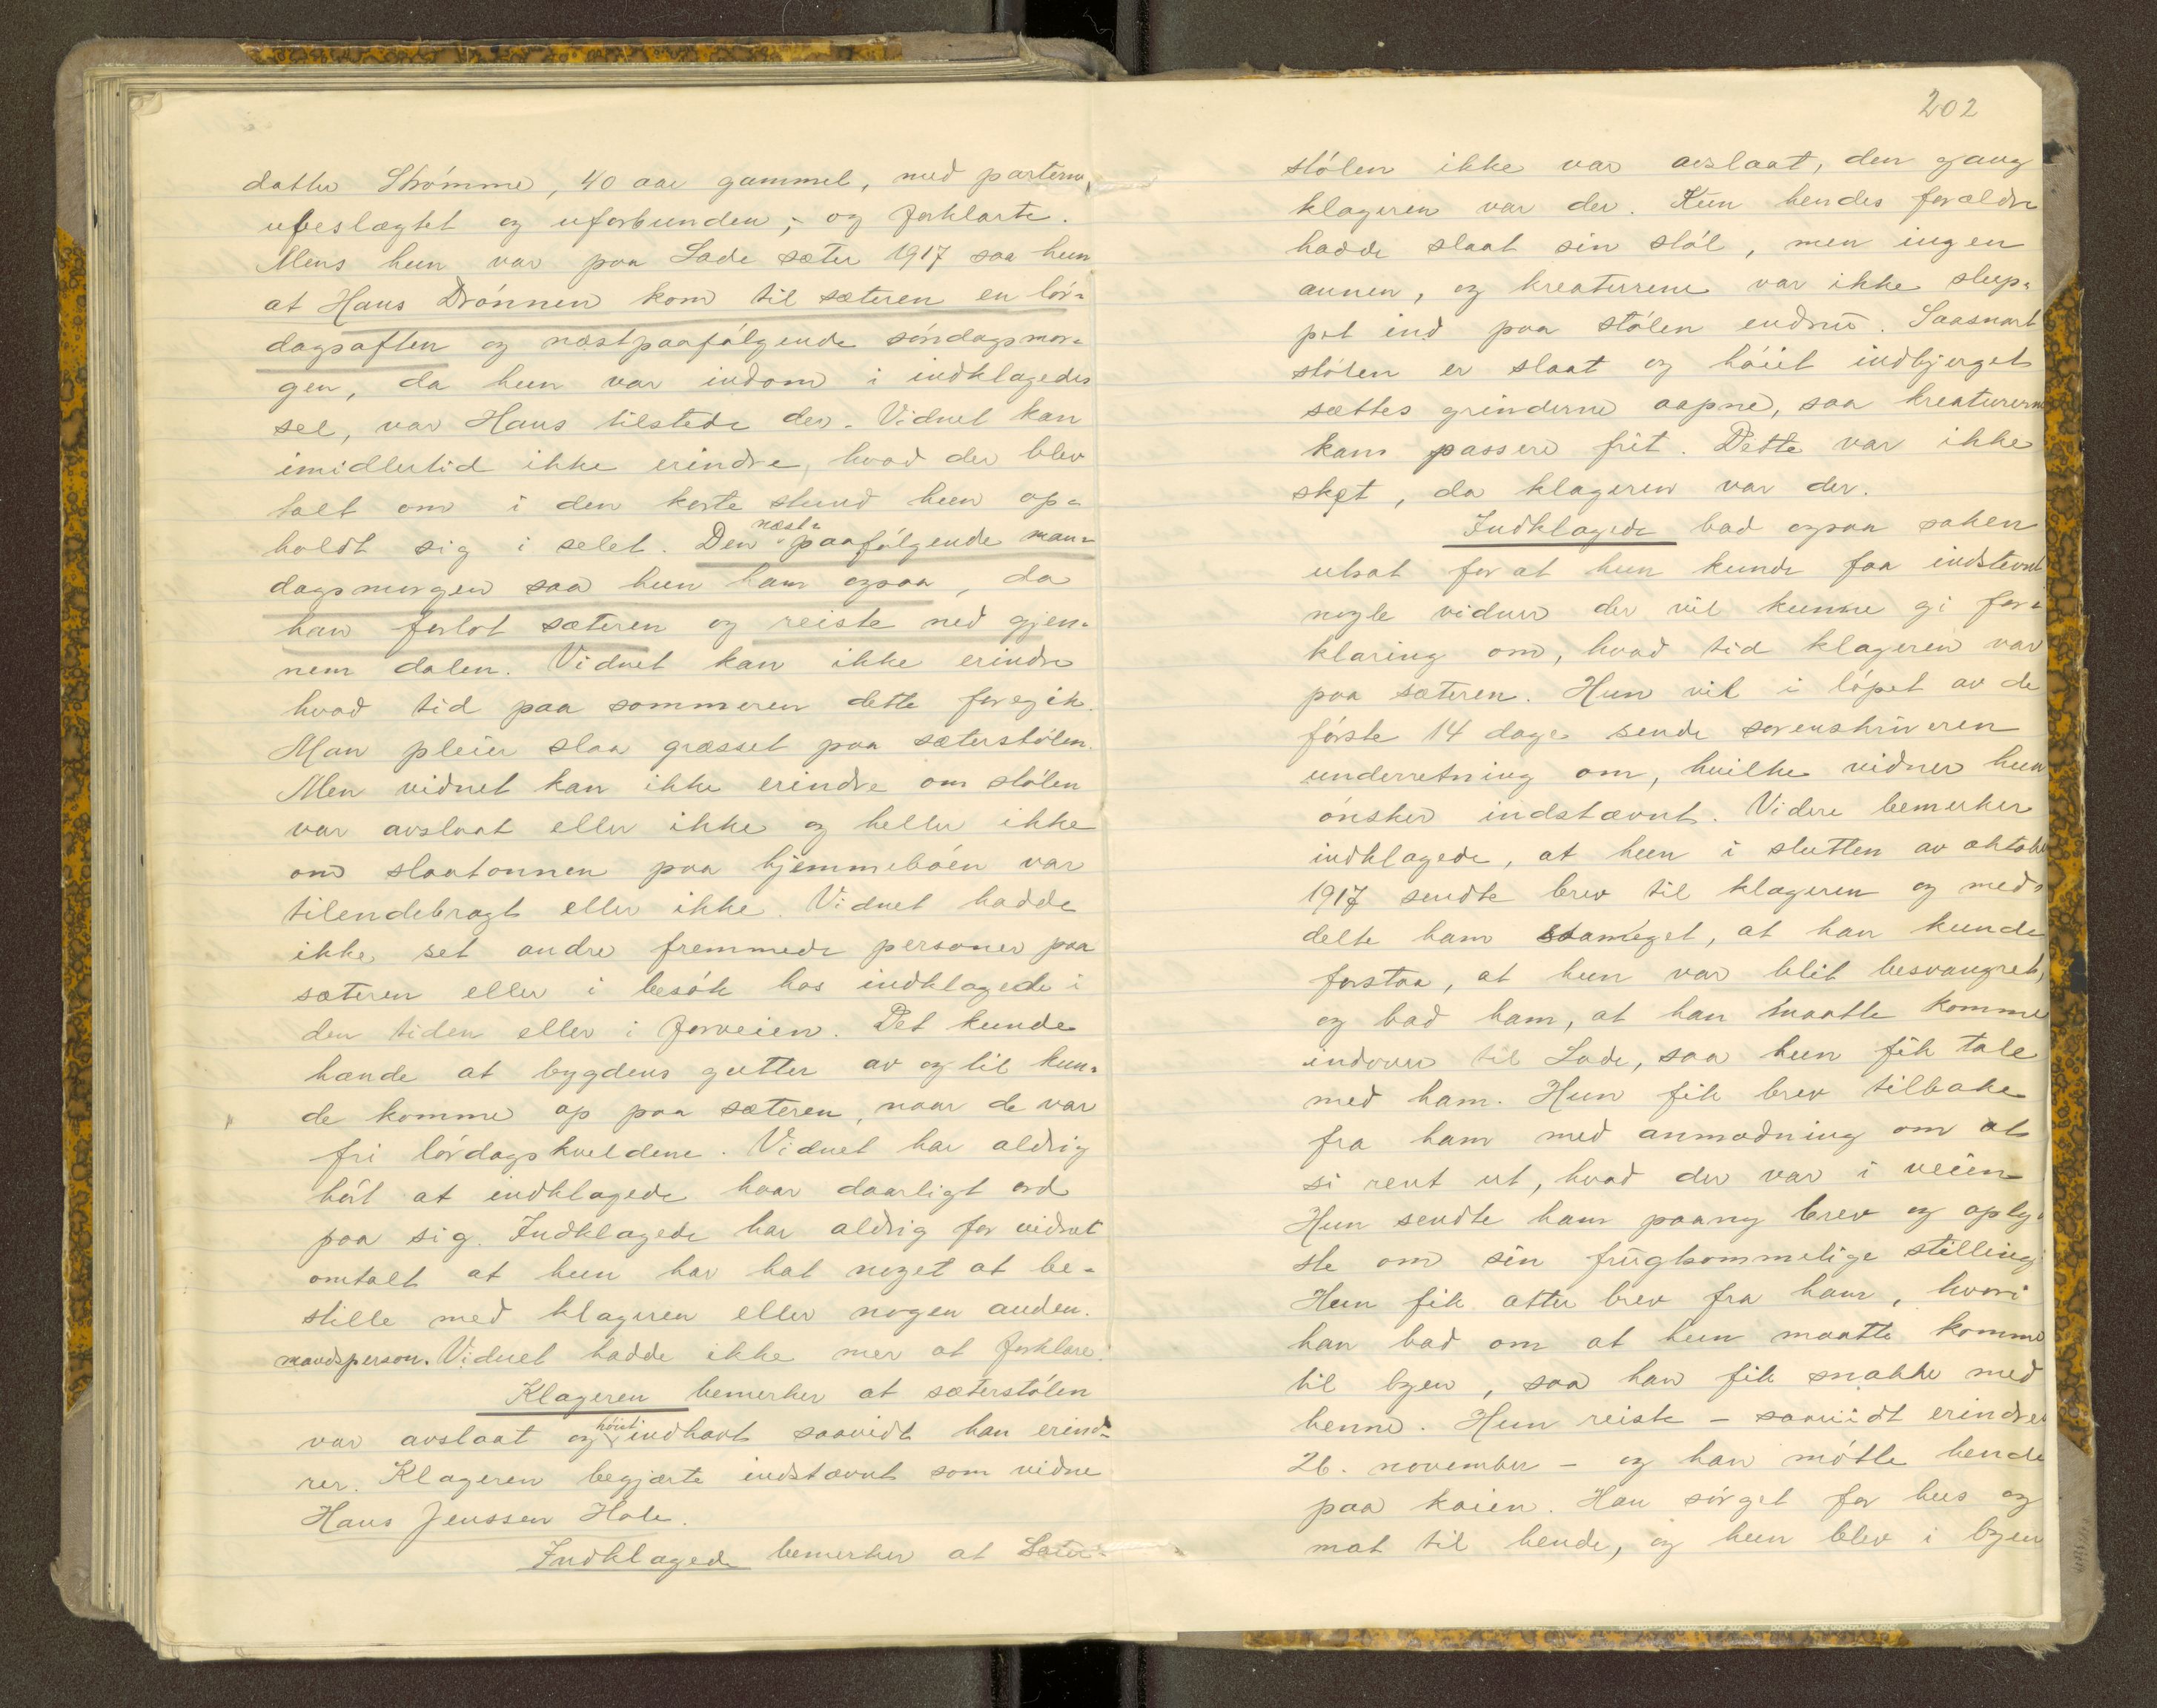 datter Strømme, 40 aar gammel, med parterne
ubeslægtet og uforbunden, - og forklarte.
Mens hun var paa Lade sæter 1917 saa hun
at Hans Drønnen kom til sæteren en lør-
dagsaften og næstpaafølgende søndagsmor-
gen, da hun var indom i indklagedes
sel, var Hans tilstede der. Vidnet kan
imidlertid ikke erindre, hvad der blev
talt om i den korte stund hun op-
holdt sig i selet. Den næst-paafølgende man-
dagsmorgen saa hun ham ogsaa, da
han forlot sæteren og reiste ned gjen-
nem dalen. Vidnet kan ikke erindre
hvad tid paa sommeren dette foregik.
Man pleier slaa græsset paa sæterstølen.
Men vidnet kan ikke erindre om stølen
var avslaat eller ikke og heller ikke
om slaatonnen paa hjemmebøen var
tilendebragt eller ikke. Vidnet hadde
ikke set andre fremmede personer paa
sæteren eller i besøk hos indklagede i
den tiden eller i forveien. Det kunde
hænde at bygdens gutter av og til kun-
de komme op paa sæteren, naar de var
fri lørdagskveldene. Vidnet har aldrig
hørt at indklagede haar daarligt ord
paa sig. Indklagede har aldrig for vidnet
omtalt at hun har hat noget at be-
stille med klageren eller nogen anden
mandsperson. Vidnet hadde ikke mer at forklare.
Klageren bemerker at sæterstølen
var avslaat og høiet indhavt saavidt han erind-
rer. Klageren begjærte indstævnt som vidne
Hans Jenssen Hole.
Indklagede bemerker at Sæter-
202
stølen ikke var avslaat, den gang
klageren var der. Kun hendes forældre
hadde slaat sin støl, men ingen
annen, og kreaturene var ikke slup-
pet ind paa stølen endnu. Saasnart
stølen er slaat og høiet indbjerget
sættes grinderne aapne, saa kreaturerne
kan passere frit. Dette var ikke
sket, da klageren var der.
Indklagede bad ogsaa saken
utsat for at hun kunde faa indstevnt
nogle vidner der vil kunne gi for-
klaring om, hvad tid klageren var
paa sæteren. Hun vil i løpet av de
første 14 dage sende sorenskriveren
underretning om, hvilke vidner hun
ønsker indstævnt. Videre bemerker
indklagede, at hun i slutten av oktober
1917 sendte brev til klageren og med-
delte ham saameget, at han kunde
forstaa, at hun var blit besvangret,
og bad ham, at han maatte komme
indover til Lade, saa hun fik tale
med ham. Hun fik brev tilbake
fra ham med anmodning om at
si rent ut, hvad der var i veien
Hun sendte ham paany brev og oply-
ste om sin frugtsommelige stilling.
Hun fik atter brev fra ham, hvori
han bad om at hun maatte komme
til byen, saa han fik snakke med
henne. Hun reiste - saavidt erindres
26. november - og han møtte hende
paa kaien. Han sørget for hus og
mat til hende, og hun blev i byen